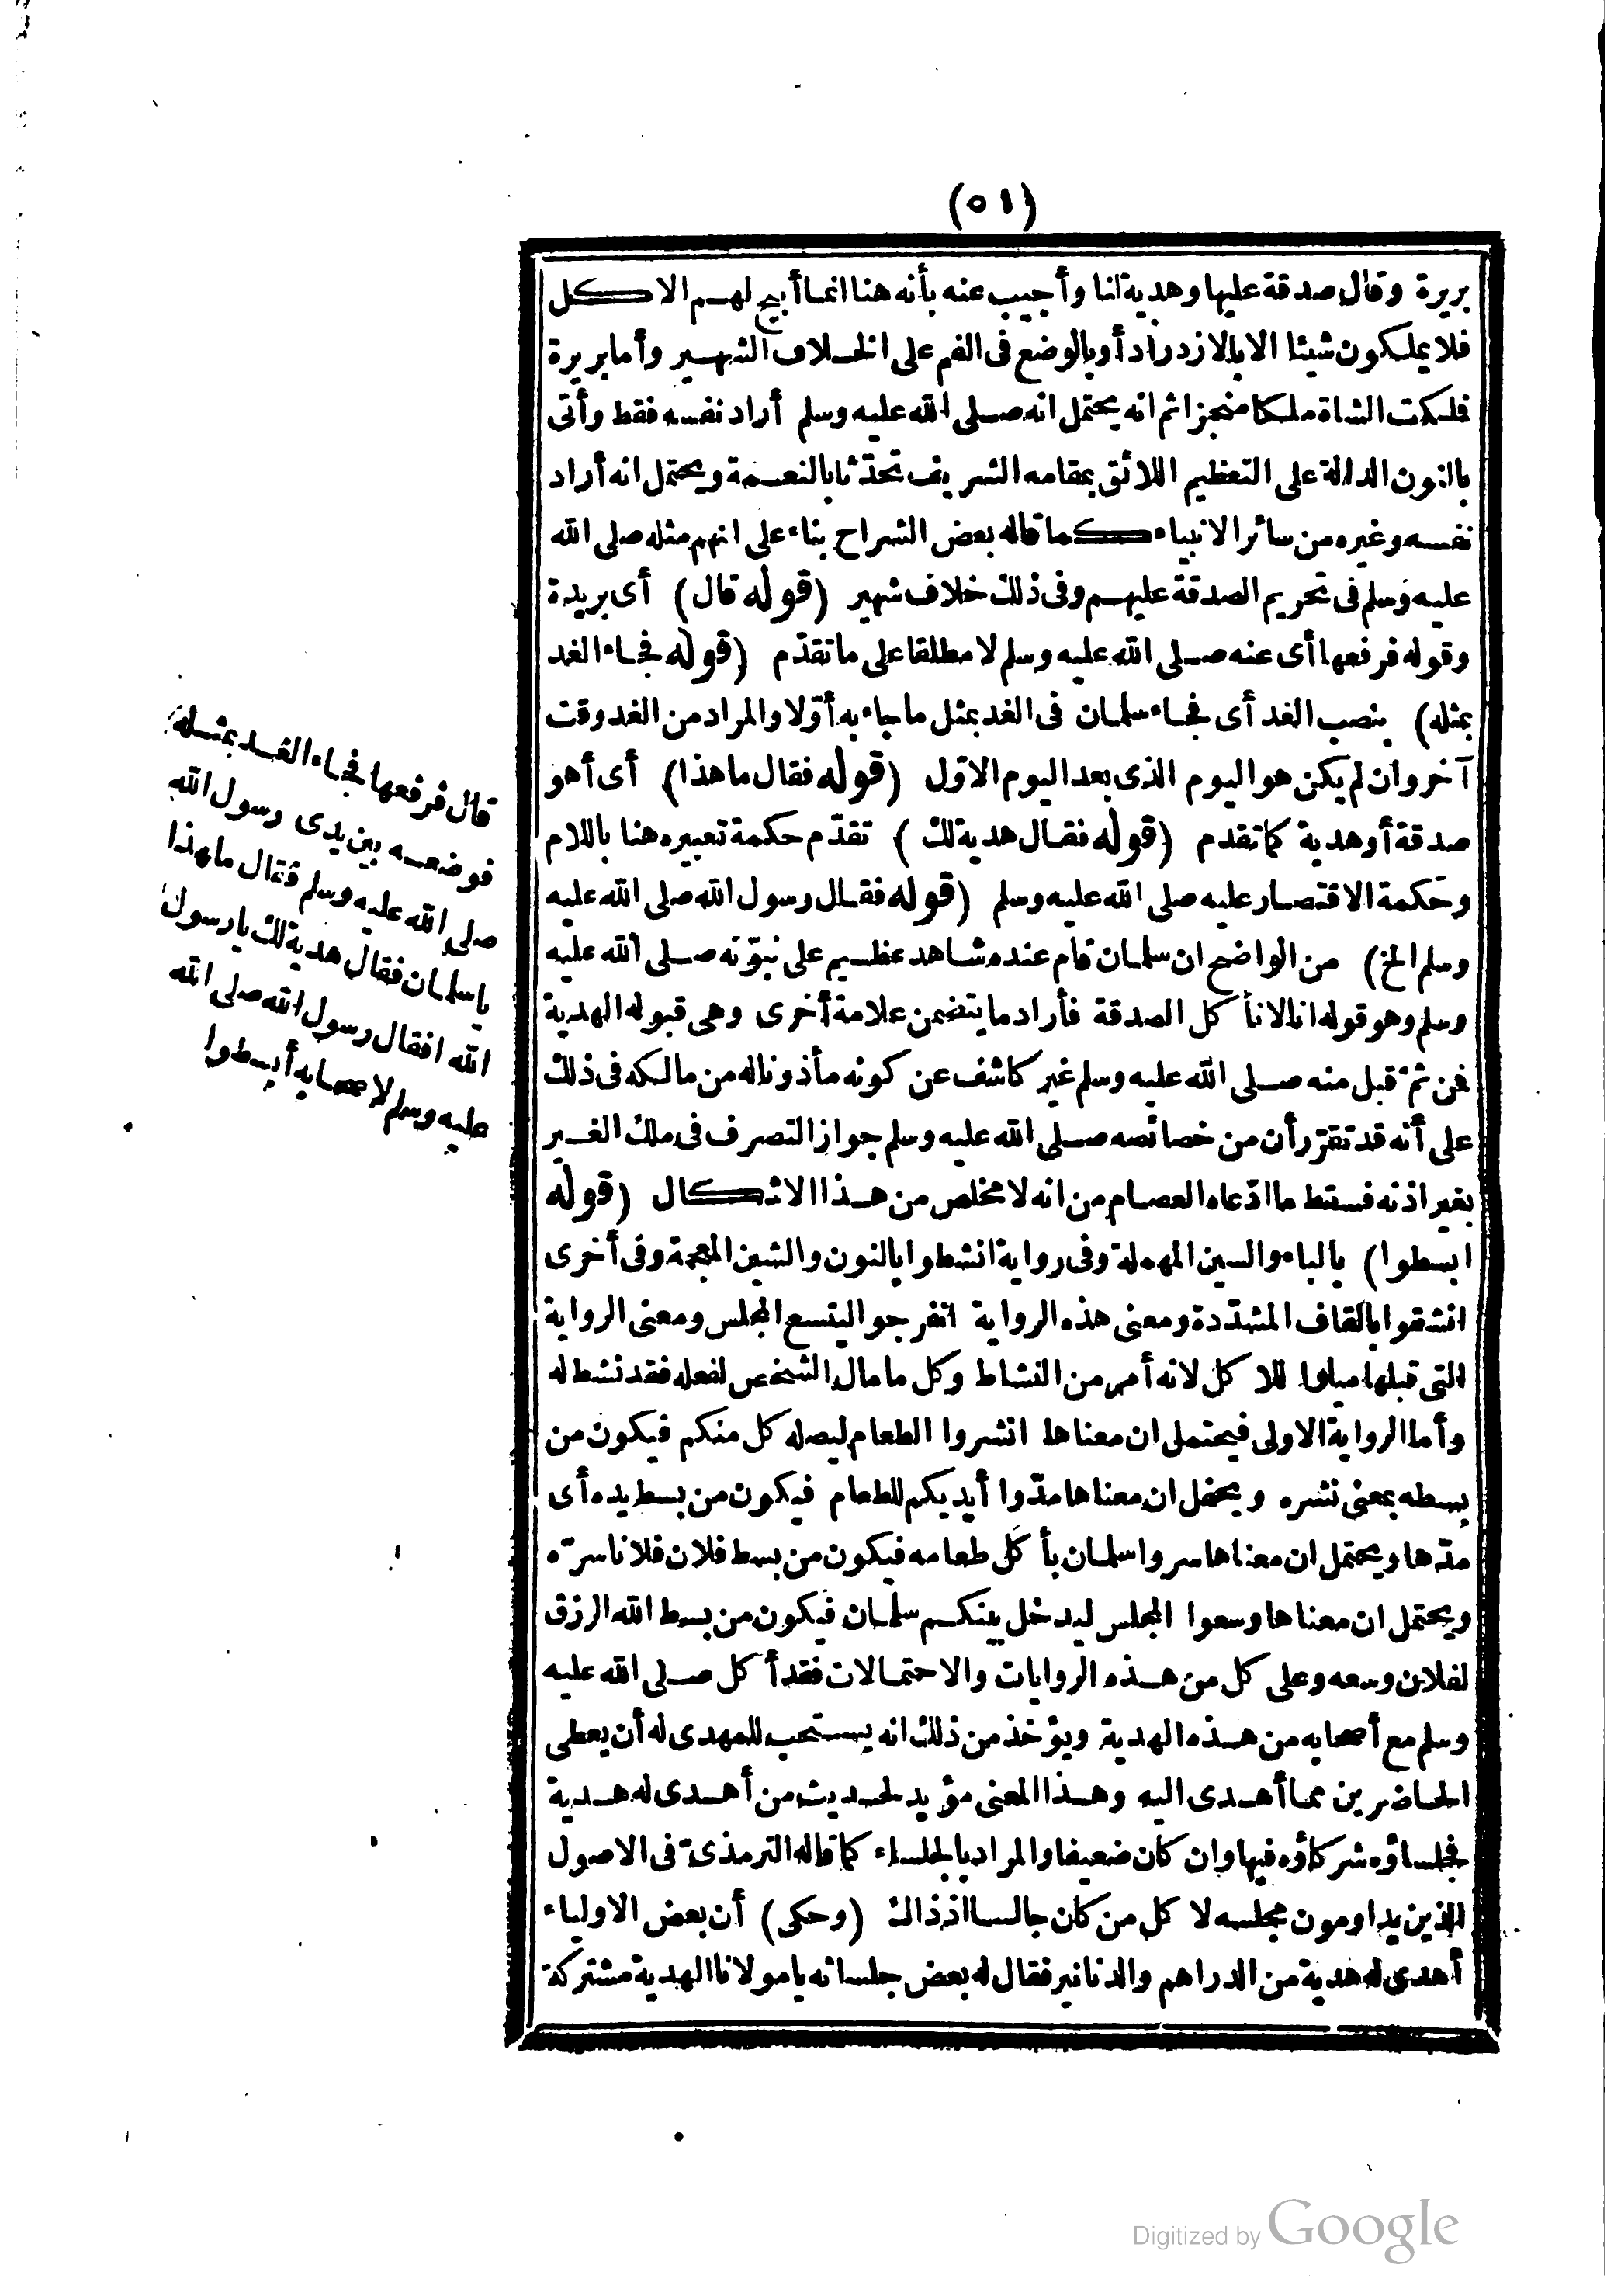 (٥١)
بريرة وقال صدقة عليها وهدية لنا وأجيب عنه بأنه هنا انما أبيح لهم الاكل
فلا يملكون شيئا الا بالازدراد أو بالوضع فى الفم على الخلاف الشهير وأما بريرة
فلكت الشاة ملكا منجزا ثم انه يحتمل انه صلى الله عليه وسلم أراد نفسه فقط وأتى
بالنون الدالة على التعظيم اللائق بمقامه الشريف تحدّثا بالنعمة ويحتمل انه أراد
نفسه وغيره من سائر الانبياء كما قاله بعض الشراح بناء على انهم مثله صلى الله
عليه وسلم فى تحريم الصدقة عليهم وفى ذلك خلاف شهير (قوله قال) أى بريدة
وقوله فرفعها أى عنه صلى الله عليه وسلم لا مطلقا على ما تقدّم (قوله فجاء الغد
بمثله) بنصب الغد أى فجاء سلمان فى الغد بمثل ما جاء به أوّلا والمراد من الغد وقت
آخر وان لم يكن هو اليوم الذى بعد اليوم الاوّل (قوله فقال ما هذا) أى أهو
صدقة أو هدية كما تقدم (قوله فقال هدية لك) تقدّم حكمة تعبيره هنا باللام
وحكمة الاقتصار عليه صلى الله عليه وسلم (قوله فقال رسول الله صلى الله عليه
وسلم الخ) من الواضح ان سلمان قام عنده شاهد عظيم على نبوّته صلى الله عليه
وسلم وهو قوله انا لا نأكل الصدقة فأراد ما يتضمن علامة أخرى وهى قبوله الهدية
فمن ثمّ قبل منه صلى الله عليه وسلم غير كاشف عن كونه مأذونا له من مالكه فى ذلك
على أنه قد تقرّر أن من خصائصه صلى الله عليه وسلم جواز التصرف فى ملك الغير
بغير اذنه فسقط ما ادّعاه العصام من انه لا مخلص من هذا الاشكال (قوله
ابسطوا) بالباء والسين المهملة وفى رواية انشطوا بالنون والشين المعجمة وفى أخرى
انشقوا بالقاف المشدّدة ومعنى هذه الرواية انفرجوا ليتسع المجلس ومعنى الرواية
التى قبلها ميلوا للاكل لانه أمر من النشاط وكل ما مال الشخص لفعله فقد نشط له
وأما الرواية الاولى فيحتمل ان معناها انشروا الطعام ليصله كل منكم فيكون من
بسطه بمعنى نشره ويحتمل ان معناها مدّوا أيديكم للطعام فيكون من بسط يده أى
مدّها ويحتمل ان معناها سروا سلمان بأكل طعامه فيكون من بسط فلان فلانا سرّه
ويحتمل ان معناها وسعوا المجلس ليدخل بينكم سلمان فيكون من بسط الله الرزق
لفلان وسعه وعلى كل من هذه الروايات والاحتمالات فقد أكل صلى الله عليه
وسلم مع أصحابه من هذه الهدية ويؤخذ من ذلك انه يستحب للمهدى له أن يعطى
الحاضرين مما أهدى اليه وهذا المعنى مؤيد لحديث من أهدى له هدية
فجلساؤه شركاؤه فيها وان كان ضعيفا والمراد بالجلساء كما قاله الترمذىّ فى الاصول
الذين يداومون مجلسه لا كل من كان جالسا اذذاك (وحكى) أن بعض الاولياء
أهدى له هدية من الدراهم والدنانير فقال له بعض جلسائه يا مولانا الهدية مشتركة
قال فرفعها فجاء الغد بمثله
فوضعه بين يدى رسول الله
صلى الله عليه وسلم فقال ما هذا
يا سلمان فقال هدية لك يا رسول
الله فقال رسول الله صلى الله
عليه وسلم لاصحابه أبسطوا
Digitized by Google